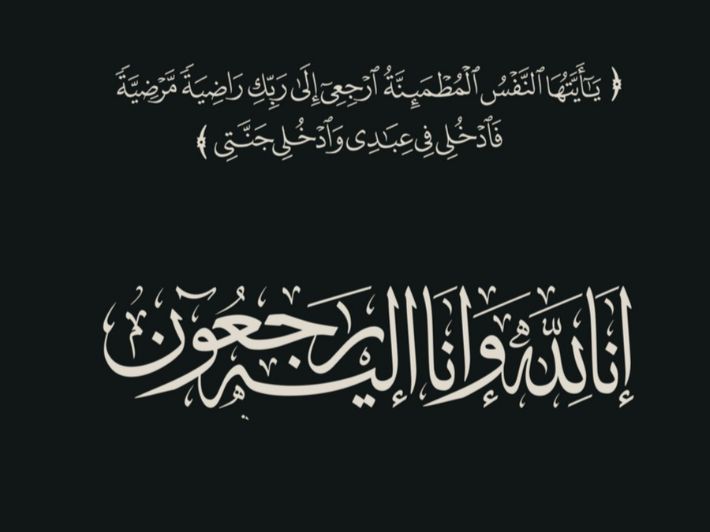 ﴿ يَٰٓأَيَّتُهَا ٱلنَّفْسُ ٱلْمُطْمَئِنَّةُ ٱرْجِعِىٓ إِلَىٰ رَبِّكِ رَاضِيَةً مَّرْضِيَّةً
فَٱدْخُلِى فِى عِبَٰدِى وَٱدْخُلِى جَنَّتِى ﴾
إنا لله وإنا إليه راجعون